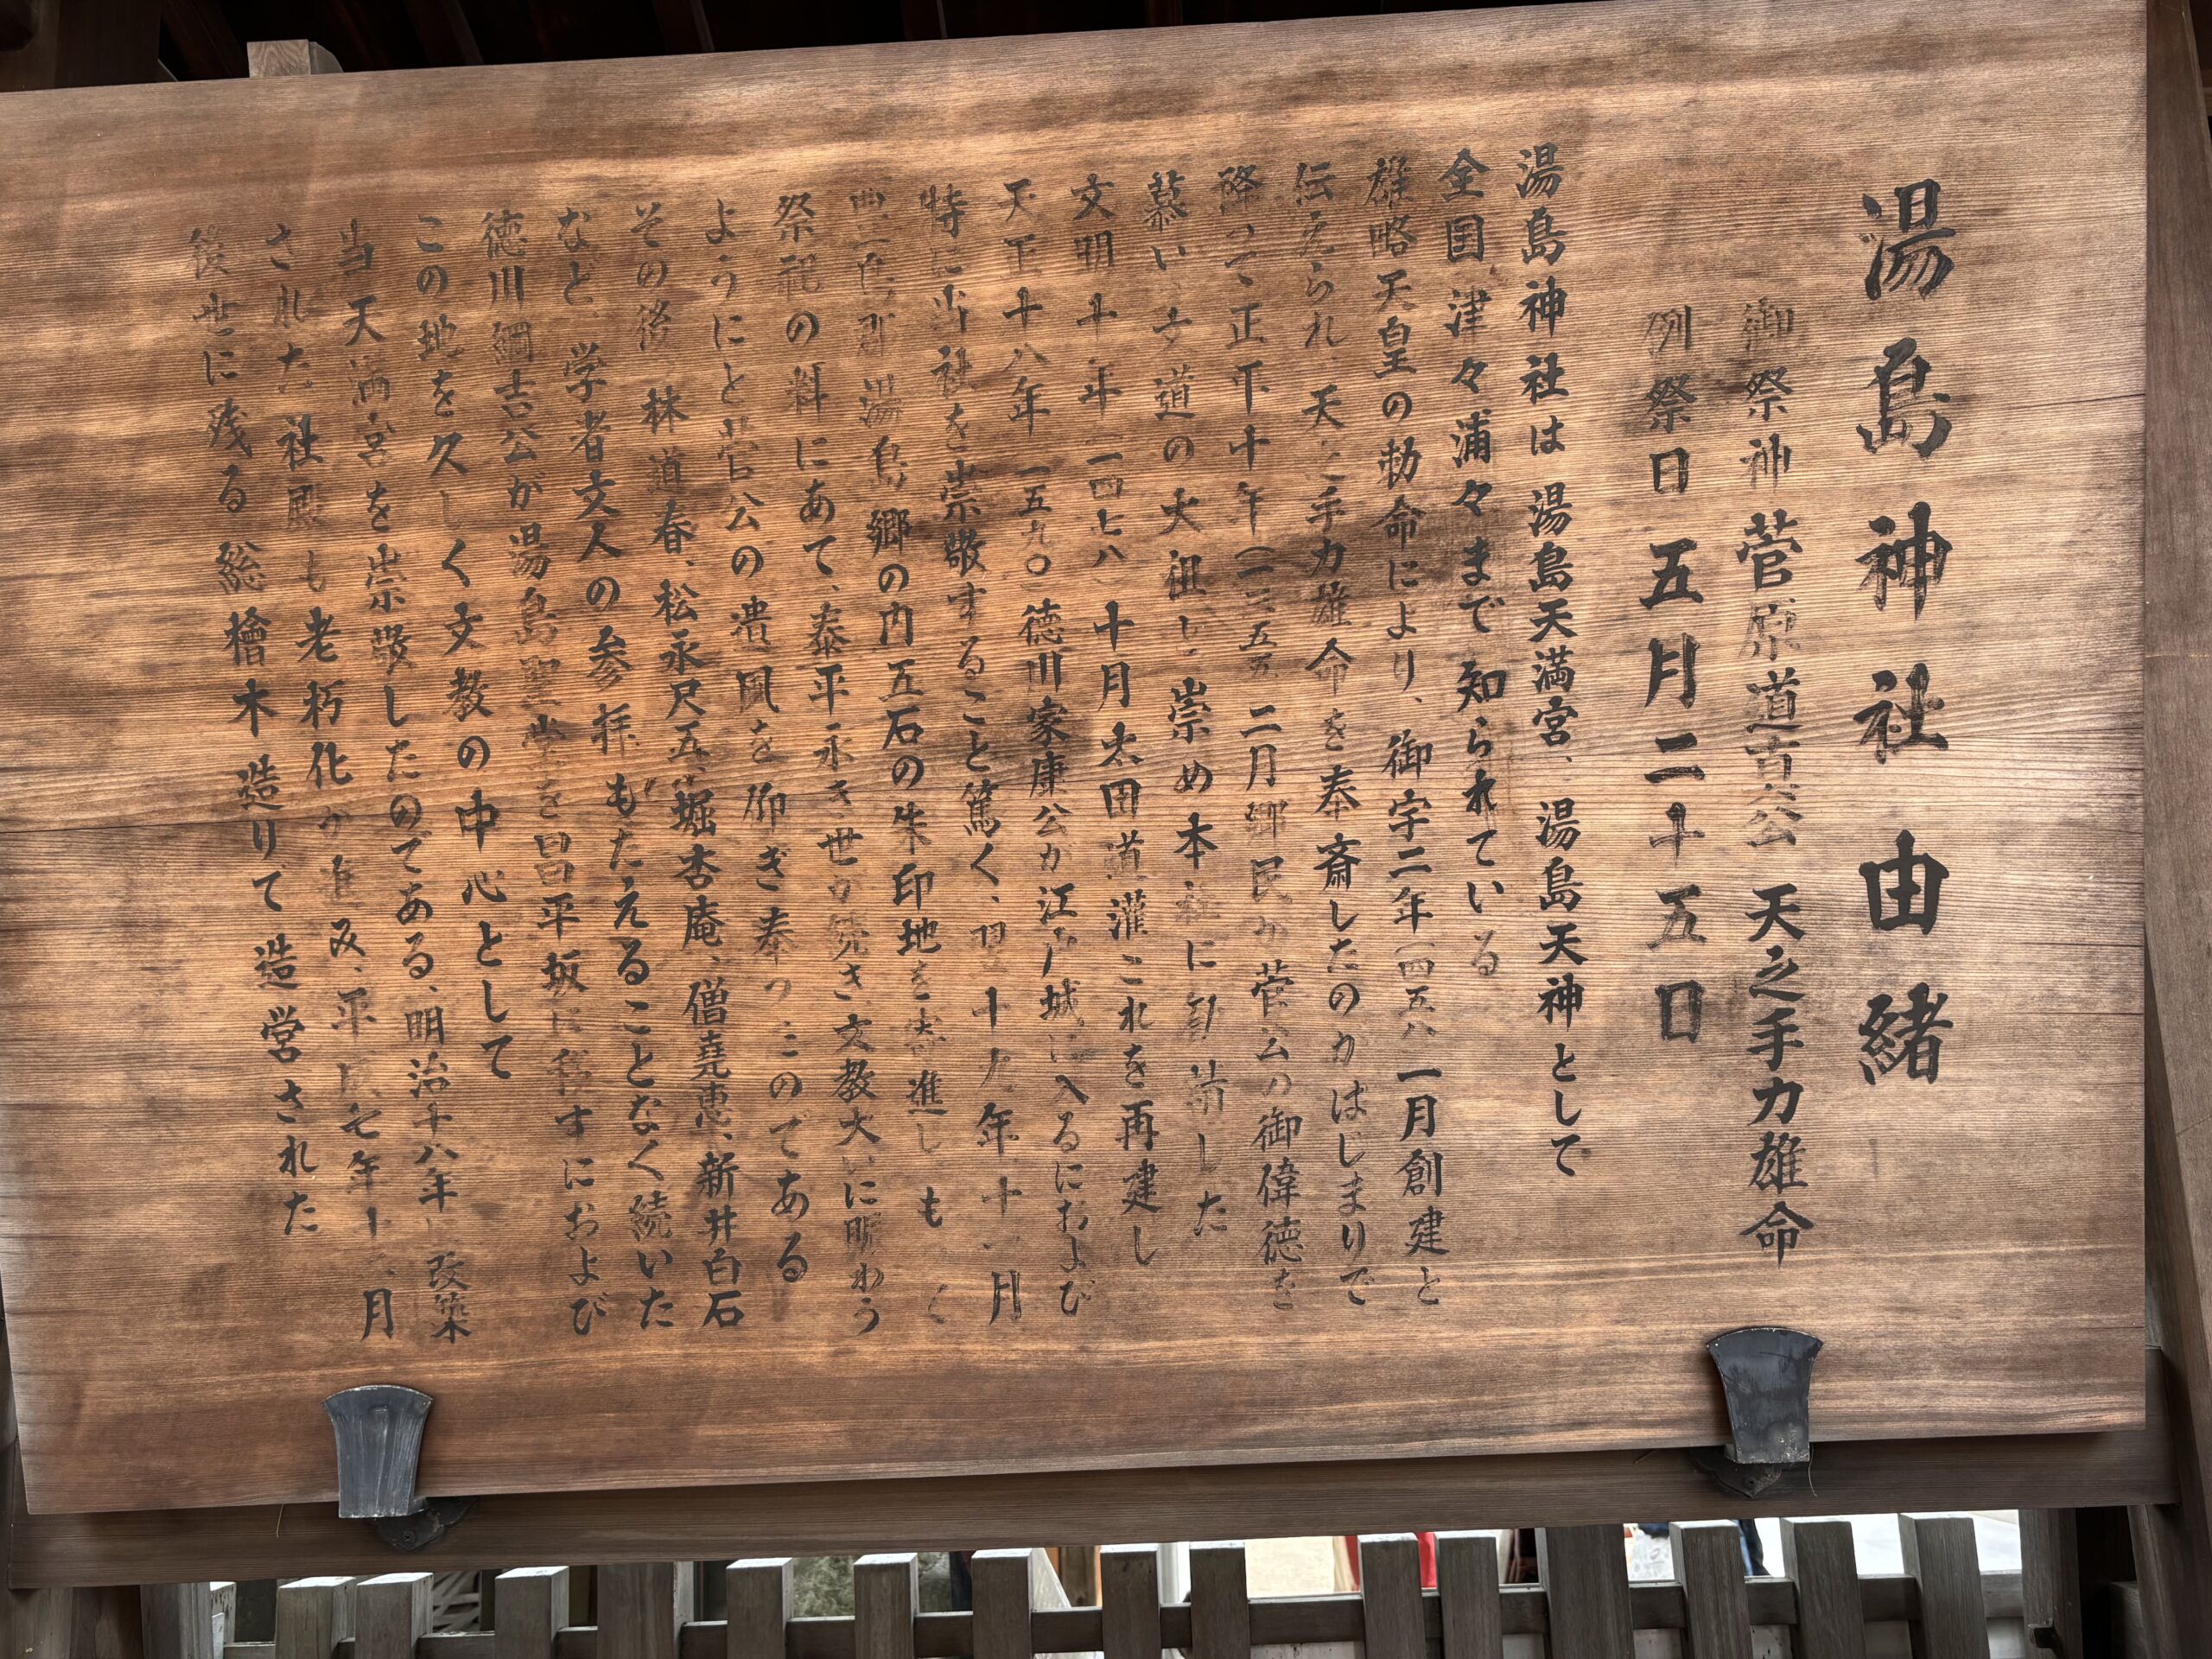 湯島神社由緒
御祭神 菅原道真公 天之手力雄命
例祭日 五月二十五日
湯島神社は 湯島天満宮、湯島天神として
全国津々浦々まで知られている
雄略天皇の勅命により、御宇二年(四五八)一月創建と
伝えられ、天之手力雄命を奉斎したのがはじまりで
降って正平十年(一三五五)二月郷民が菅公の御偉徳を
慕い 文道の大祖と崇め本社に勧請した
文明十年(一四七八)十月太田道灌これを再建し
天正十八年(一五九〇)徳川家康公が江戸城に入るにおよび
特に当社を崇敬すること篤く、翌十九年十一月
豊島郡湯島郷の内五石の朱印地を寄進し も く
祭祀の料にあて、泰平永き世が続き、文教大いに賑わう
ようにと菅公の遺風を仰ぎ奉つたのである
その後 林道春、松永尺五、堀杏庵、僧堯恵、新井白石
など 学者文人の参拝もたえることなく続いた
徳川綱吉公が湯島聖堂を昌平坂に移すにおよび
この地を久しく文教の中心として
当天満宮を崇敬したのである、明治十八年に改築
された社殿も老朽化が進み、平成七年十二月
後世に残る総檜木造りで造営された